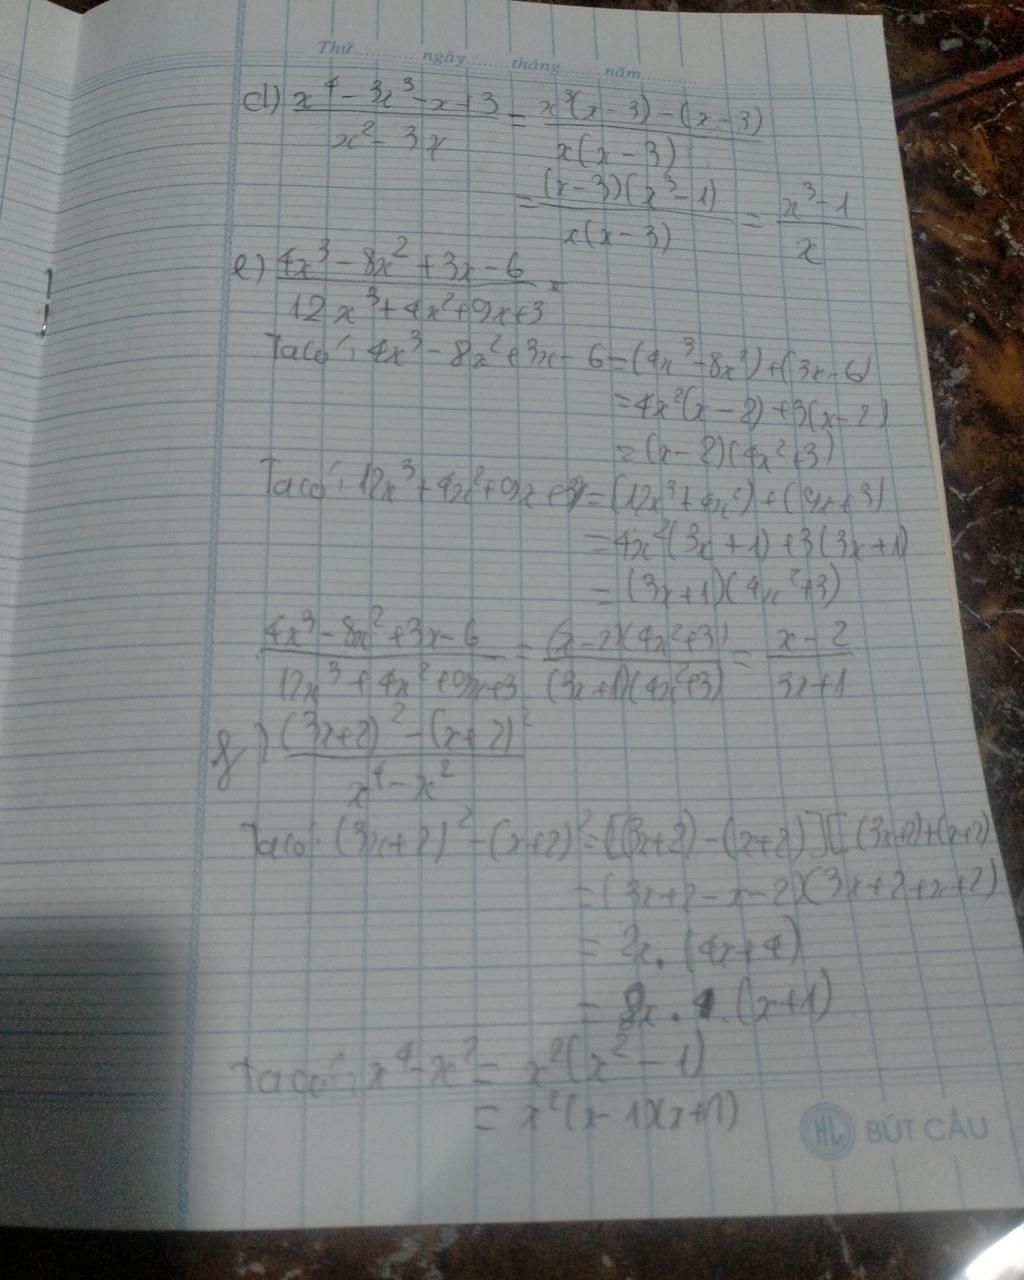 Thứ ngày tháng năm
d) (x⁴ - 3x³ - x + 3)/(x² - 3x) = (x³(x - 3) - (x - 3))/(x(x - 3))
= ((x - 3)(x³ - 1))/(x(x - 3)) = (x³ - 1)/x
e) (4x³ - 8x² + 3x - 6)/(12x³ + 4x² + 9x + 3) =
Ta có: 4x³ - 8x² + 3x - 6 = (4x³ - 8x²) + (3x - 6)
= 4x²(x - 2) + 3(x - 2)
= (x - 2)(4x² + 3)
Ta có: 12x³ + 4x² + 9x + 3 = (12x³ + 4x²) + (9x + 3)
= 4x²(3x + 1) + 3(3x + 1)
= (3x + 1)(4x² + 3)
(4x³ - 8x² + 3x - 6)/(12x³ + 4x² + 9x + 3) = ((x - 2)(4x² + 3))/((3x + 1)(4x² + 3)) = (x - 2)/(3x + 1)
f) ((3x + 2)² - (x + 2)²)/(x⁴ - x²)
Ta có: (3x + 2)² - (x + 2)² = [(3x + 2) - (x + 2)][(3x + 2) + (x + 2)
= (3x + 2 - x - 2)(3x + 2 + x + 2)
= 2x . (4x + 4)
= 8x . (x + 1)
Ta có: x⁴ - x² = x²(x² - 1)
= x²(x - 1)(x + 1)
HL BÚT CẦU